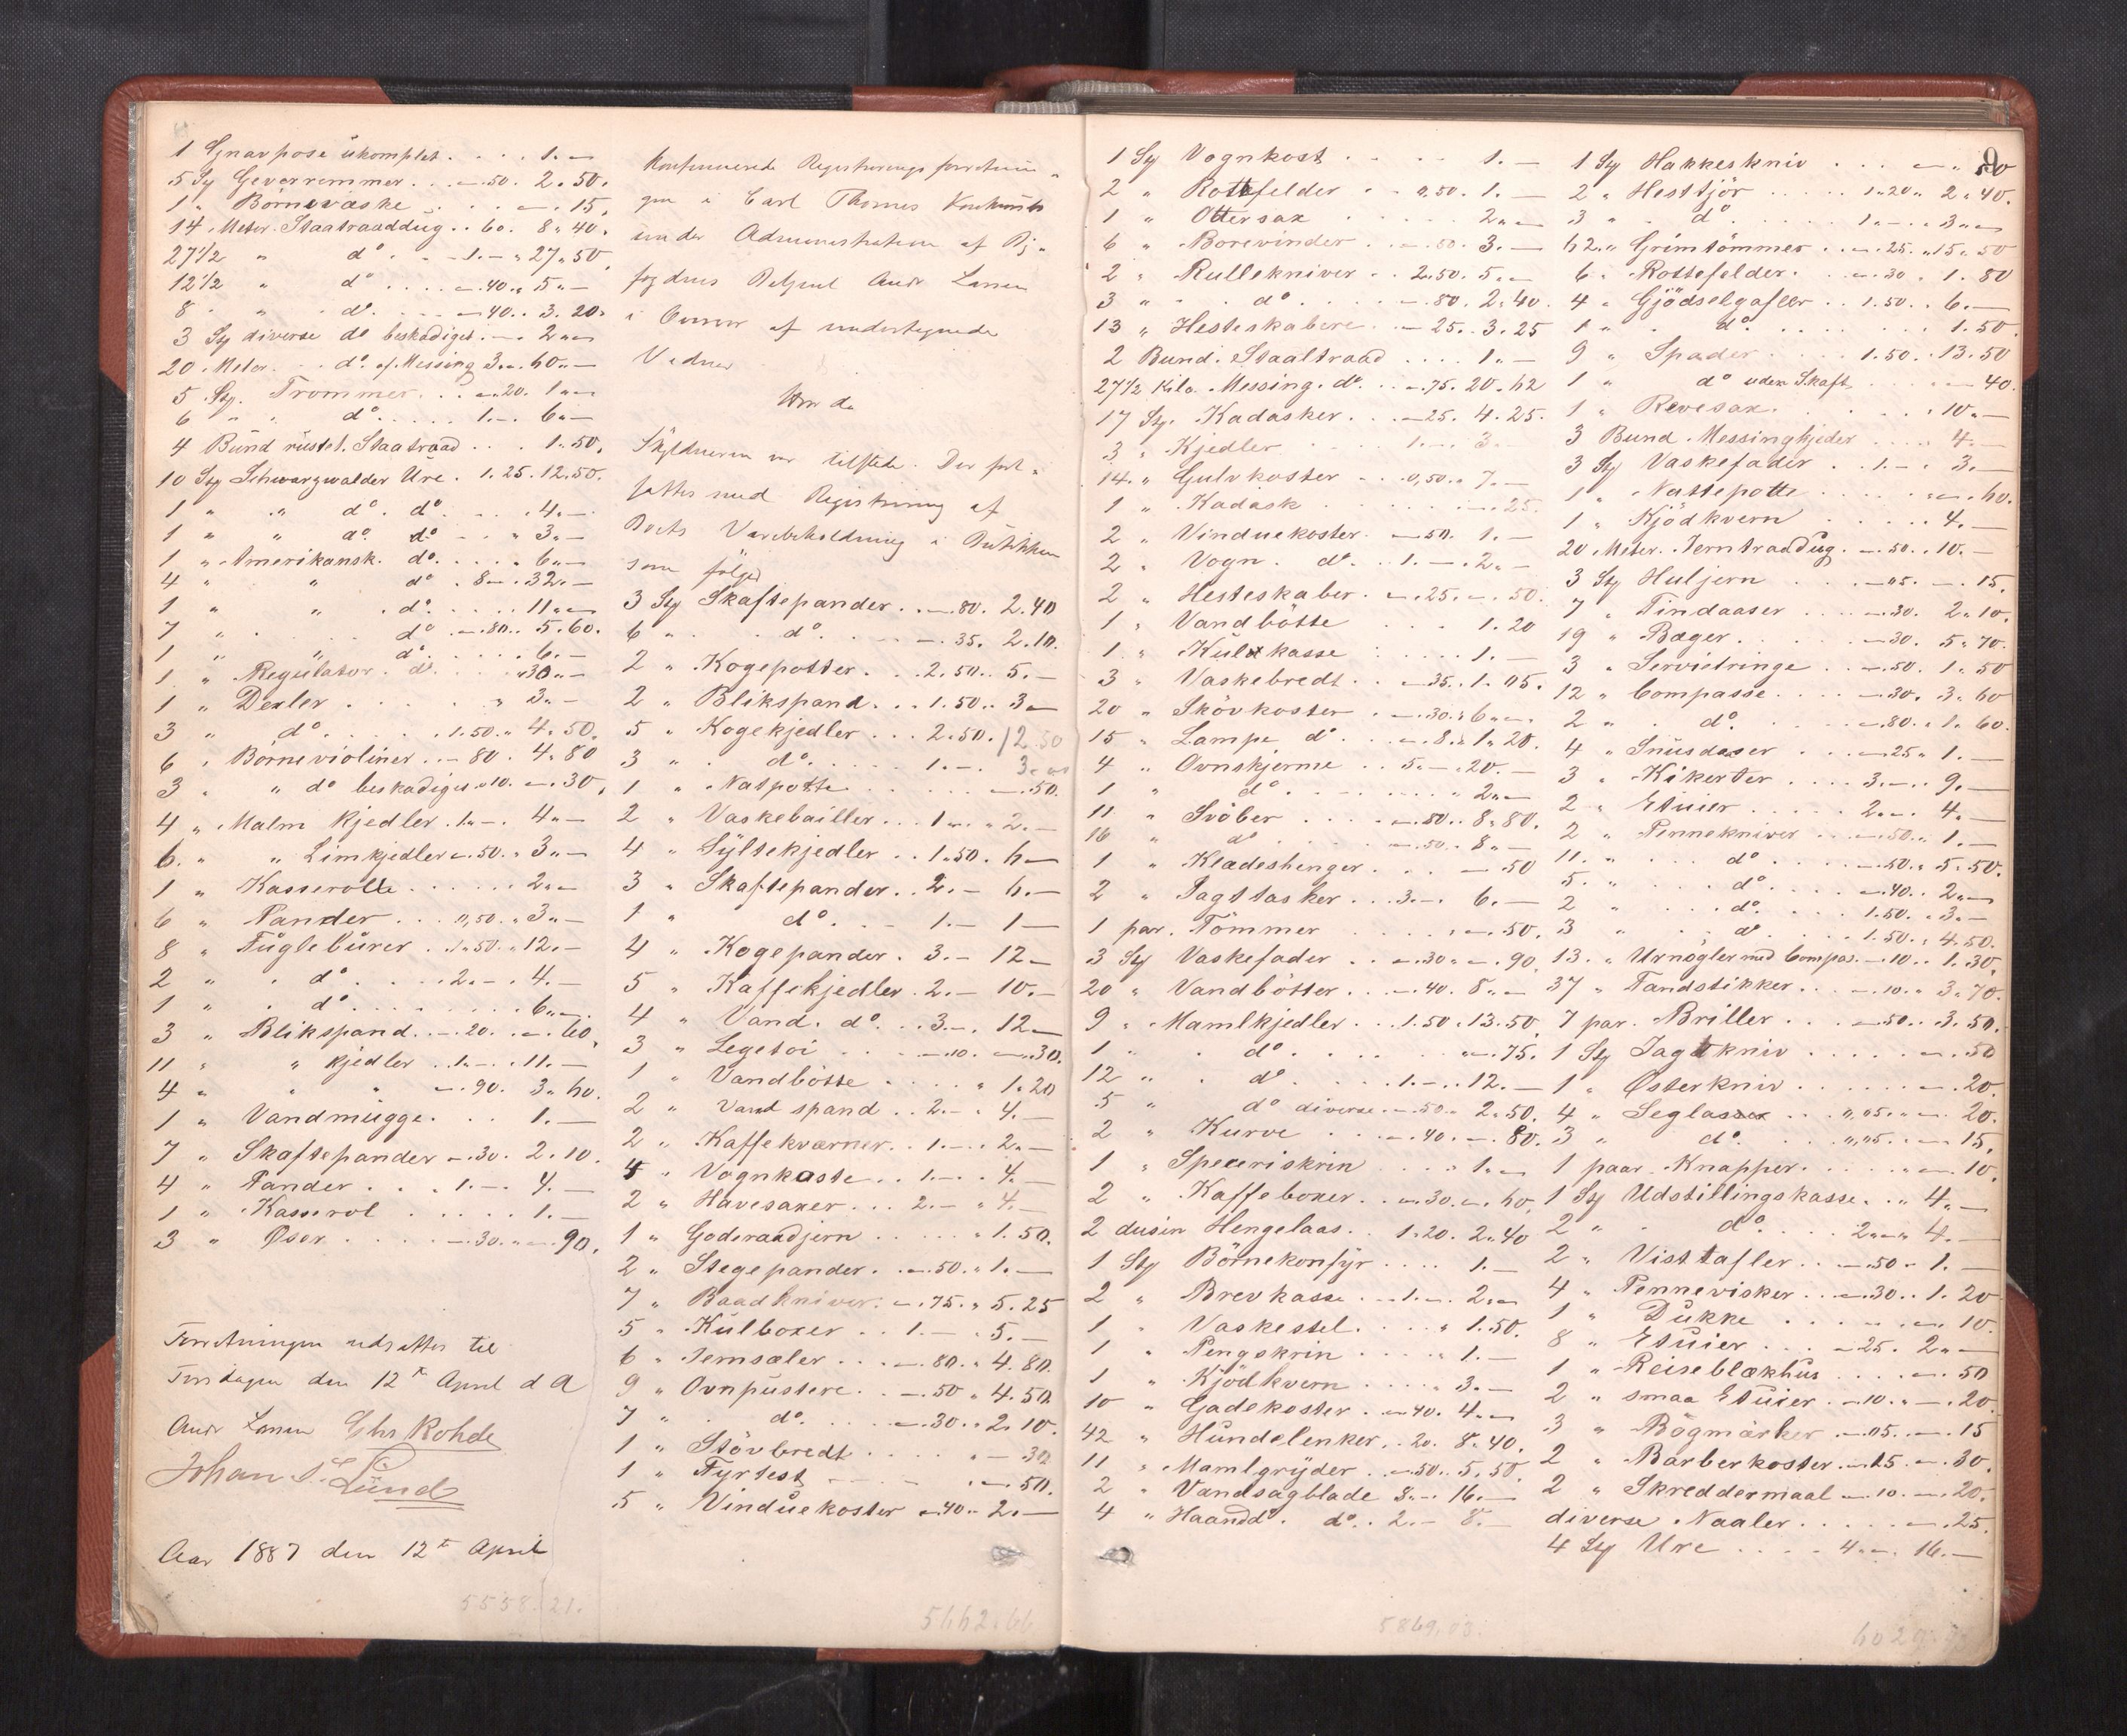 1 Gnavpose ukomplet . . . . 1. —
5 Sty Geværremmer . . — .50. 2.50.
1 " Børnevæske . . . — . 15.
14 Meter Staatraaddug . . 60. 8.40.
27 1/2 " do . . . 1.— " 27.50.
12 1/2 " do . . . . —.40. 5. —
8 " " do . . . —.40 . . 3.20.
3 Sty diverse do beskadiget . — . 2 . —
20 Meter . . do. af Messing 3. — . 60. —
5 Sty. Trommer . . . —.20. 1. —
6 " " do . . . . 1. — . 6. —
4 Bund rustet. Staatraad . . . 1.50.
10 Sty Schwarzwalder Ure . 1.25.12.50.
1 " " do. do. . . . . 4. —
1 " " do. do. . . " 3. —
1 " Amerikansk. do. . . . . 6. —
4 " " do . 8 — . 32. —
1 " " . do . . . . . 11. —
7 " . . . do . —.80 . . 5.60.
1 " " do . . . . 6. —
1 " Regulator . do . . . " 30. —
1 " Dexler . . . . . " 3. —
3 " do . . . . . 1.50. " 4.50.
6 " Børnevioliner . . — 80. 4.80
3 " " do beskadiget .10. — .30.
4 " Malm Kjedler . 1. — . 4. —
6. " " Limkjedler — .50. " 3. —
1 " Kasserolle . . . . . . 2. —
6 " Pander . . . 0,50 . " 3. —
8 " Fuglebúrer . . 1.50. " 12. —
2 " . do . . . . 2. — . 4. —
1 " . do . . . . . . . 6. —
3 " Blikspand . . — .20. . — .60.
11 " " kjedler . . 1. — . . 11. —
4 " " " —.90. 3.60.
1 " Vandmugge . . . 1. —
7 " Skaftepander — .30. 2.10.
4 " Pander . . . . 1. — . 4. —
1 " Kasserol . . . . . 1. —
3 " Øser . . . . — .30. " — .90.
Forretningen udsattes til
Tirsdagen den 12te April d A
Andr Larsen Chs Rohde
Johan L. Lund
Aar 1887 den 12te April
5558.21.
under Administration af By-
fogdens Betjent Andr Larsen
i Overvær af undertegnede
Vidner
Hvor da
Skyldneren var tilstede. Der fort-
sattes med Registrering af
Boets Varebeholdning i Butikken
som følger
3 Sty Skaftepander . . — .80. 2.40
6 " . . do . . . — . 35. 2.10.
2 " Kogepotter . . . 2.50 . . 5. —
2 " Blikspand . . . 1.50. . 3 —
5 " Kogekjedler . . . 2.50. 12.50
3 " . do . . . . . 1. — . 3. —
1 " Natpotte . . . . . . — .50.
2 " Vaskebailler . . . 1 — . " 2. —
4 " Syltekjedler . . 1.50. 6 —
3 " Skaftepander . . 2. — 6. —
1 " do . . — 1. — 1 —
4 " Kogepander . 3. — 12 —
5 " Kaffekjedler . 2. — 10. —
4 " Vand . do . . . 3. — . 12 —
3 " Legetoi . . . . — .10. — .30.
1 " Vandbötte . . . . " 1.20
2 " Vand spand . . 2. — . 4. —
2 " Kaffekværner . . 1. — . . 2. —
4 " Vognkaste . . 1. — . . 4. —
2 " Havesaxer . . . 2. — " 4. —
1 " Goderaadjern . . . . . " 1.50.
2 " Stegepander . . — .50. " 1. —
7 " Baadkniver . — .75. " 5.25
5 " Kulboxer . . 1. — . . 5. —
6 " Jernsæler . . . — .80. " 4.80.
9 " Ovnpústere . . — .50 " 4.50
7 " . do . . . . — .30. . 2.10.
1 " Stövbredt . . . . . " — 30
1 " Fyrtest — . — . — . — .50.
5 " Vinduekoster — .40. . 2. —
5662.66
1 Sty Vognkost . . . . 1. —
2 " Rottefelder . . 0,50. 1. —
1 " Ottersax . . . . . 2. —
6 " Borevinder . . — .50. 3. —
2 " Rullekniver . . 2.50. 5. —
3 " . . do . . . . — . 80. 2.40.
13 " Hesteskabere . — 25. . 3.25
2 Bund. Staaltraad . . . . 1. —
27 1/2 Kilo Messing. do . . — .75. 20.62
17 Sty. Kadasker . . . — 25. 4.25.
3 " Kjedler . . . . 1. — . 3. —
14 " Gulvkoster . . . 0,50. " 7. —
1 " Kadask . . . . . . — .25.
2 " Vinduekoster . . — 50. 1. —
2 " Vogn . do . . 1. — . 2. —
2 " Hesteskaber . — .25. — . 50.
1 " Vandbötte . . . 1.20
1 " Kulkasse . . . . . 1. —
3 " Vaskebredt . . — 35. . 1.05.
20 " Skövkoster . — .30. " 6. —
15 " Lampe do . . . — .8. " 1.20.
4 " Ovnskjerme . . 5. — . 20. —
1 " do . . . . . . . . 2. —
11 " Svöber . . . . — .80. . 8.80.
16 " do . . . . . — .50 . . 8. —
1 " Klædeshenger . . . — 50
2 " Jagttasker . . . 3. — . 6. —
1 par. Tömmer . . . . . — .50.
3 Sty Vaskefader . . — .30. — .90.
20 " Vandbötter . . . — .40. 8. —
9 " Mamlkjedler . . . 1.50. 13.50.
1 " . do . . . . . . . — .75.
12 " . do . . . . 1. — . . 12. —
5 " do diverse . — .50. " 2.50.
2 " Kurve . . . — .40. — .80.
1 " Speceriskrin . . . . 1. —
2 " Kaffeboxer . . — .30. — .60.
2 dusin Hengelaas . . 1.20. 2.40
1 Sty Börnekonfyr . . . . 1. —
2 " Brevkasse . . . 1. — . 2. —
1 " Vaskestel . . . . " 1.50.
1 " Pengskrin . . . . . 1. —
1 " Kjödkvern . . . . " 3. —
10 " Gadekoster . — 40. 4. —
42 " Hundelenker . . 20. 8.40.
11 " Mamlgryder . . — .50. . 5.50.
2 " Vandsagblade 8. — . 16. —
4 " Haandd. do . . 2. — 8. —
5869.03.
9
1 Sty Hakkeskniv . . . — . 50
2 " Hesttjör . . . . . 1.20. 2.40.
3 " do . . . . . 1. — . . 3. —
62 " Grimtömmer . . — .25. " 15.50
6 " Rottefelder . . . — .30 . 1.80
4 " Gjödselgafler . . 1.50 . . 6. —
1 " . do . . . . . . . . 1.50.
9 " Spader . . . . 1.50. . 13.50
1 " do uden Skaft . . . . — 40.
1 " Revesax . . . . . . . . 10. —
3 Bund Messingkjeder . . . . 4. —
3 Sty Vaskefader . . 1. — . 3. —
1 " Nattepotte . . . . . . — .60.
1 " Kjödkvern . . . . . 4. —
20 Meter. Jerntraaddug . — .50. . 10. —
3 Sty Huljern . . . — 05. — . 15.
7 " Tindaaser . . . . — .30. 2.10.
19 " Bæger . . . . . — 30. 5.70.
3 " Servietringe . . . — .50. 1.50
12 " Compasse . . . . — .30. 3.60
2 " . do . . . . . — .80. . 1.60.
4 " Snusdaser . . . . — 25 " 1. —
3 " Kikerter . . . . 3. — . . 9. —
2 " Etuier . . . . . 2. — . 4. —
2 " Pennekniver . . . — .50. . 1. —
11 " . . do . . . . — .50. " 5.50.
5 " . . . do . . . . — .40. . 2. —
2 " . . . do . . . . 1.50. . 3. —
3 " . . do . . . . 1.50. " 4.50.
13 " Urnøgler med Compas . — .10. . 1.30.
37 " Tandstikker . . . — .10. . 3.70.
7 par. Briller . . . — .50. . 3.50.
1 Sty Jagtkniv . . . . . — .50
1 " Østerkniv . . . . . . — .20.
4 " Seglasser . . . 0,05. . — . 20.
3 " do . . . . 0,05. . — 15.
1 paar Knapper . . . . . . — .10.
1 Sty Udstillingskasse . . . 4. —
2 " . do . . . . 2. — . 4. —
2 " Visttafler . . — .50 — 1. —
4 " Pennevisker . . . — .30. . 1.20
1 " Dukke . . . . . . — . 10.
8 " Etuier . . . — 25. 2. —
1 " Reiseblækhus . . . . — . 50
2 " smaa Etuier . . — 10. . — .20.
3 " Bögmärker . . — .05. . — . 15
2 " Barberkoster . — .15. — .30.
2 " Skreddermaal — .10. — .20.
diverse Naaler . . . . . — .25.
4 Sty Ure . . . . 4. — . 16. —